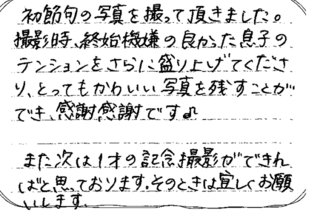 初節句の写真を撮って頂きました。
撮影時、終始機嫌の良かった息子の
テンションをさらに盛り上げてくださ
り、とってもかわいい写真を残すことが
でき、感謝感謝です♪
また次は1才の記念撮影ができれ
ばと思っております。そのときは宜しくお願
いします。